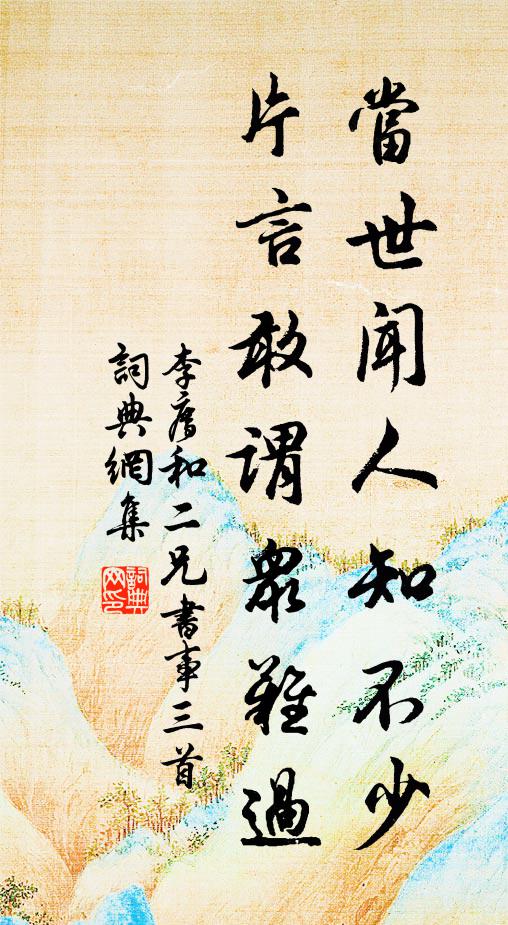 當世聞人知不少
片言敢謂眾難過
李廌和二兄書事三首
詞典網集
詞典網印